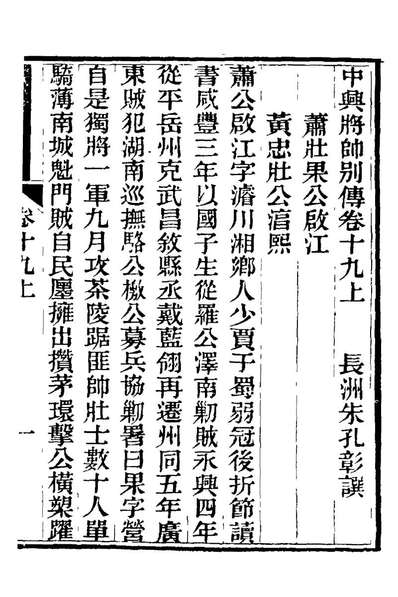 中興將帥別傳卷十九上　長洲朱孔彰譔
蕭壯果公啟江
黃忠壯公淳熙
蕭公啟江字濬川湘鄉人少賈于蜀弱冠後折節讀
書咸豐三年以國子生從羅公澤南勦賊永興四年
從平岳州克武昌敘縣丞戴藍翎再遷州同五年廣
東賊犯湖南巡撫駱公檄公募兵協勦署曰果字營
自是獨將一軍九月攻茶陵踞匪帥壯士數十人單
騎薄南城魁門賊自民廛擁出攢茅環擊公橫槊躍
卷十九上
一